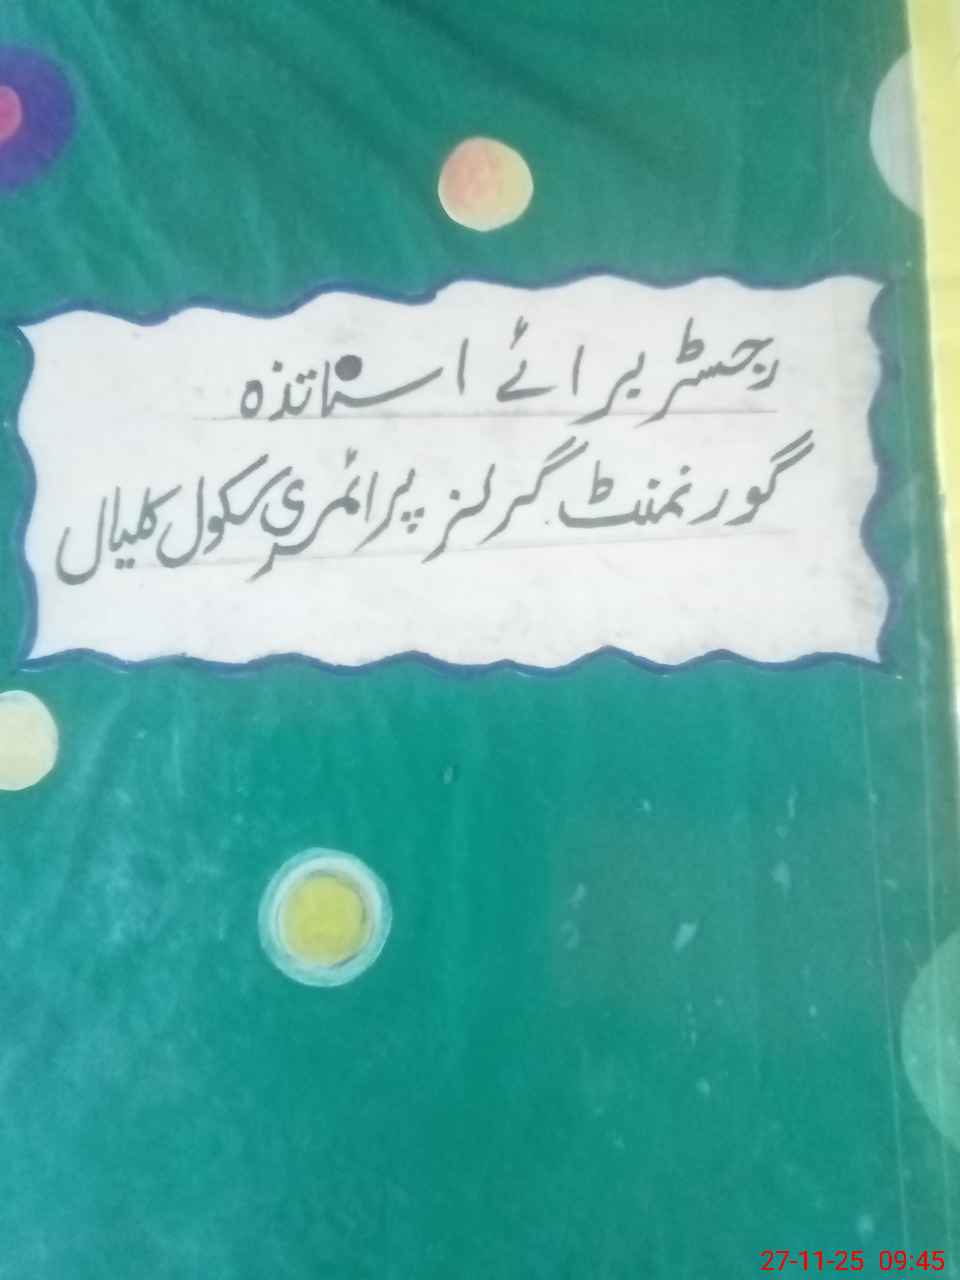 رجسٹر برائے اساتذہ
گورنمنٹ گرلز پرائمری سکول کلیال
27-11-25 09:45